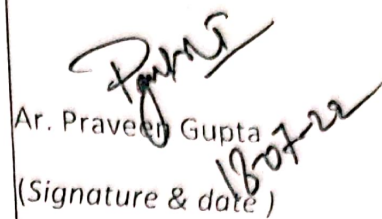 Ar. Praveen Gupta
18-07-22
(Signature & date )